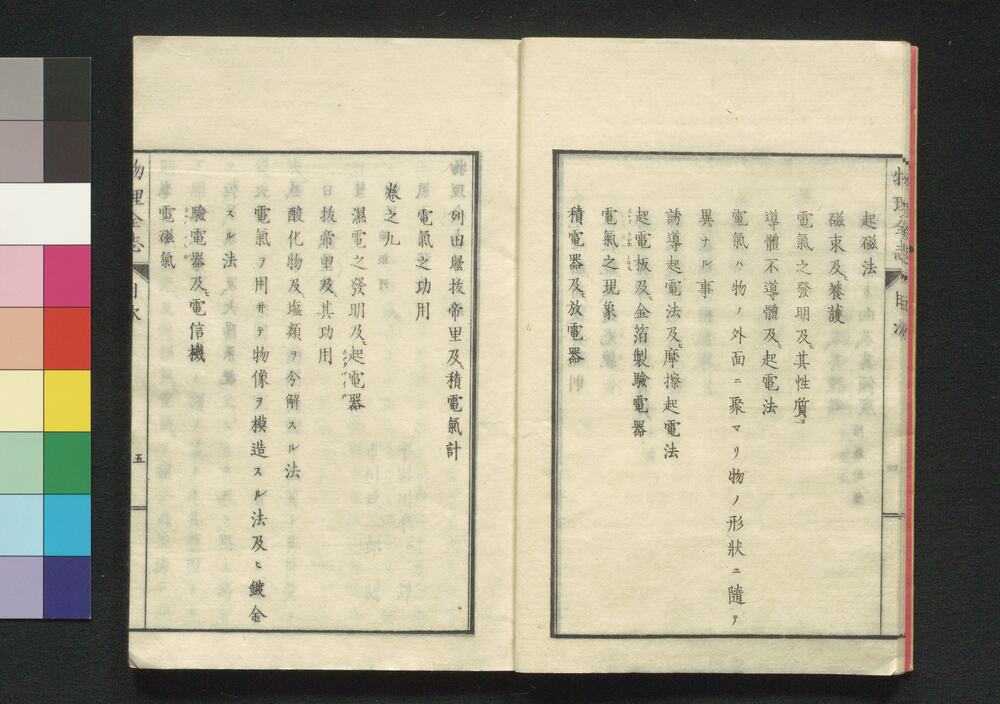 物理全志 目次
四
起磁法
磁束及ヒ養護
電氣之發明及ヒ其性質
導體不導體及ヒ起電法
電氣ハ物ノ外面ニ聚マリ物ノ形狀ニ隨テ
異ナル事
誘導起電法及ヒ摩擦起電法
起電板及ヒ金箔製驗電器
電氣之現象
積電器及ヒ放電器
列田騷拔帝里及ヒ積電氣計
電氣之功用
卷之九
濕電之發明及ヒ起電器
拔帝里及ヒ其功用
酸化物及塩類ヲ分解スル法
電氣ヲ用サテ物像ヲ模造スル法及ヒ鍍金
スル法
驗電器及ヒ電信機
電磁氣
物理全志 目次
五